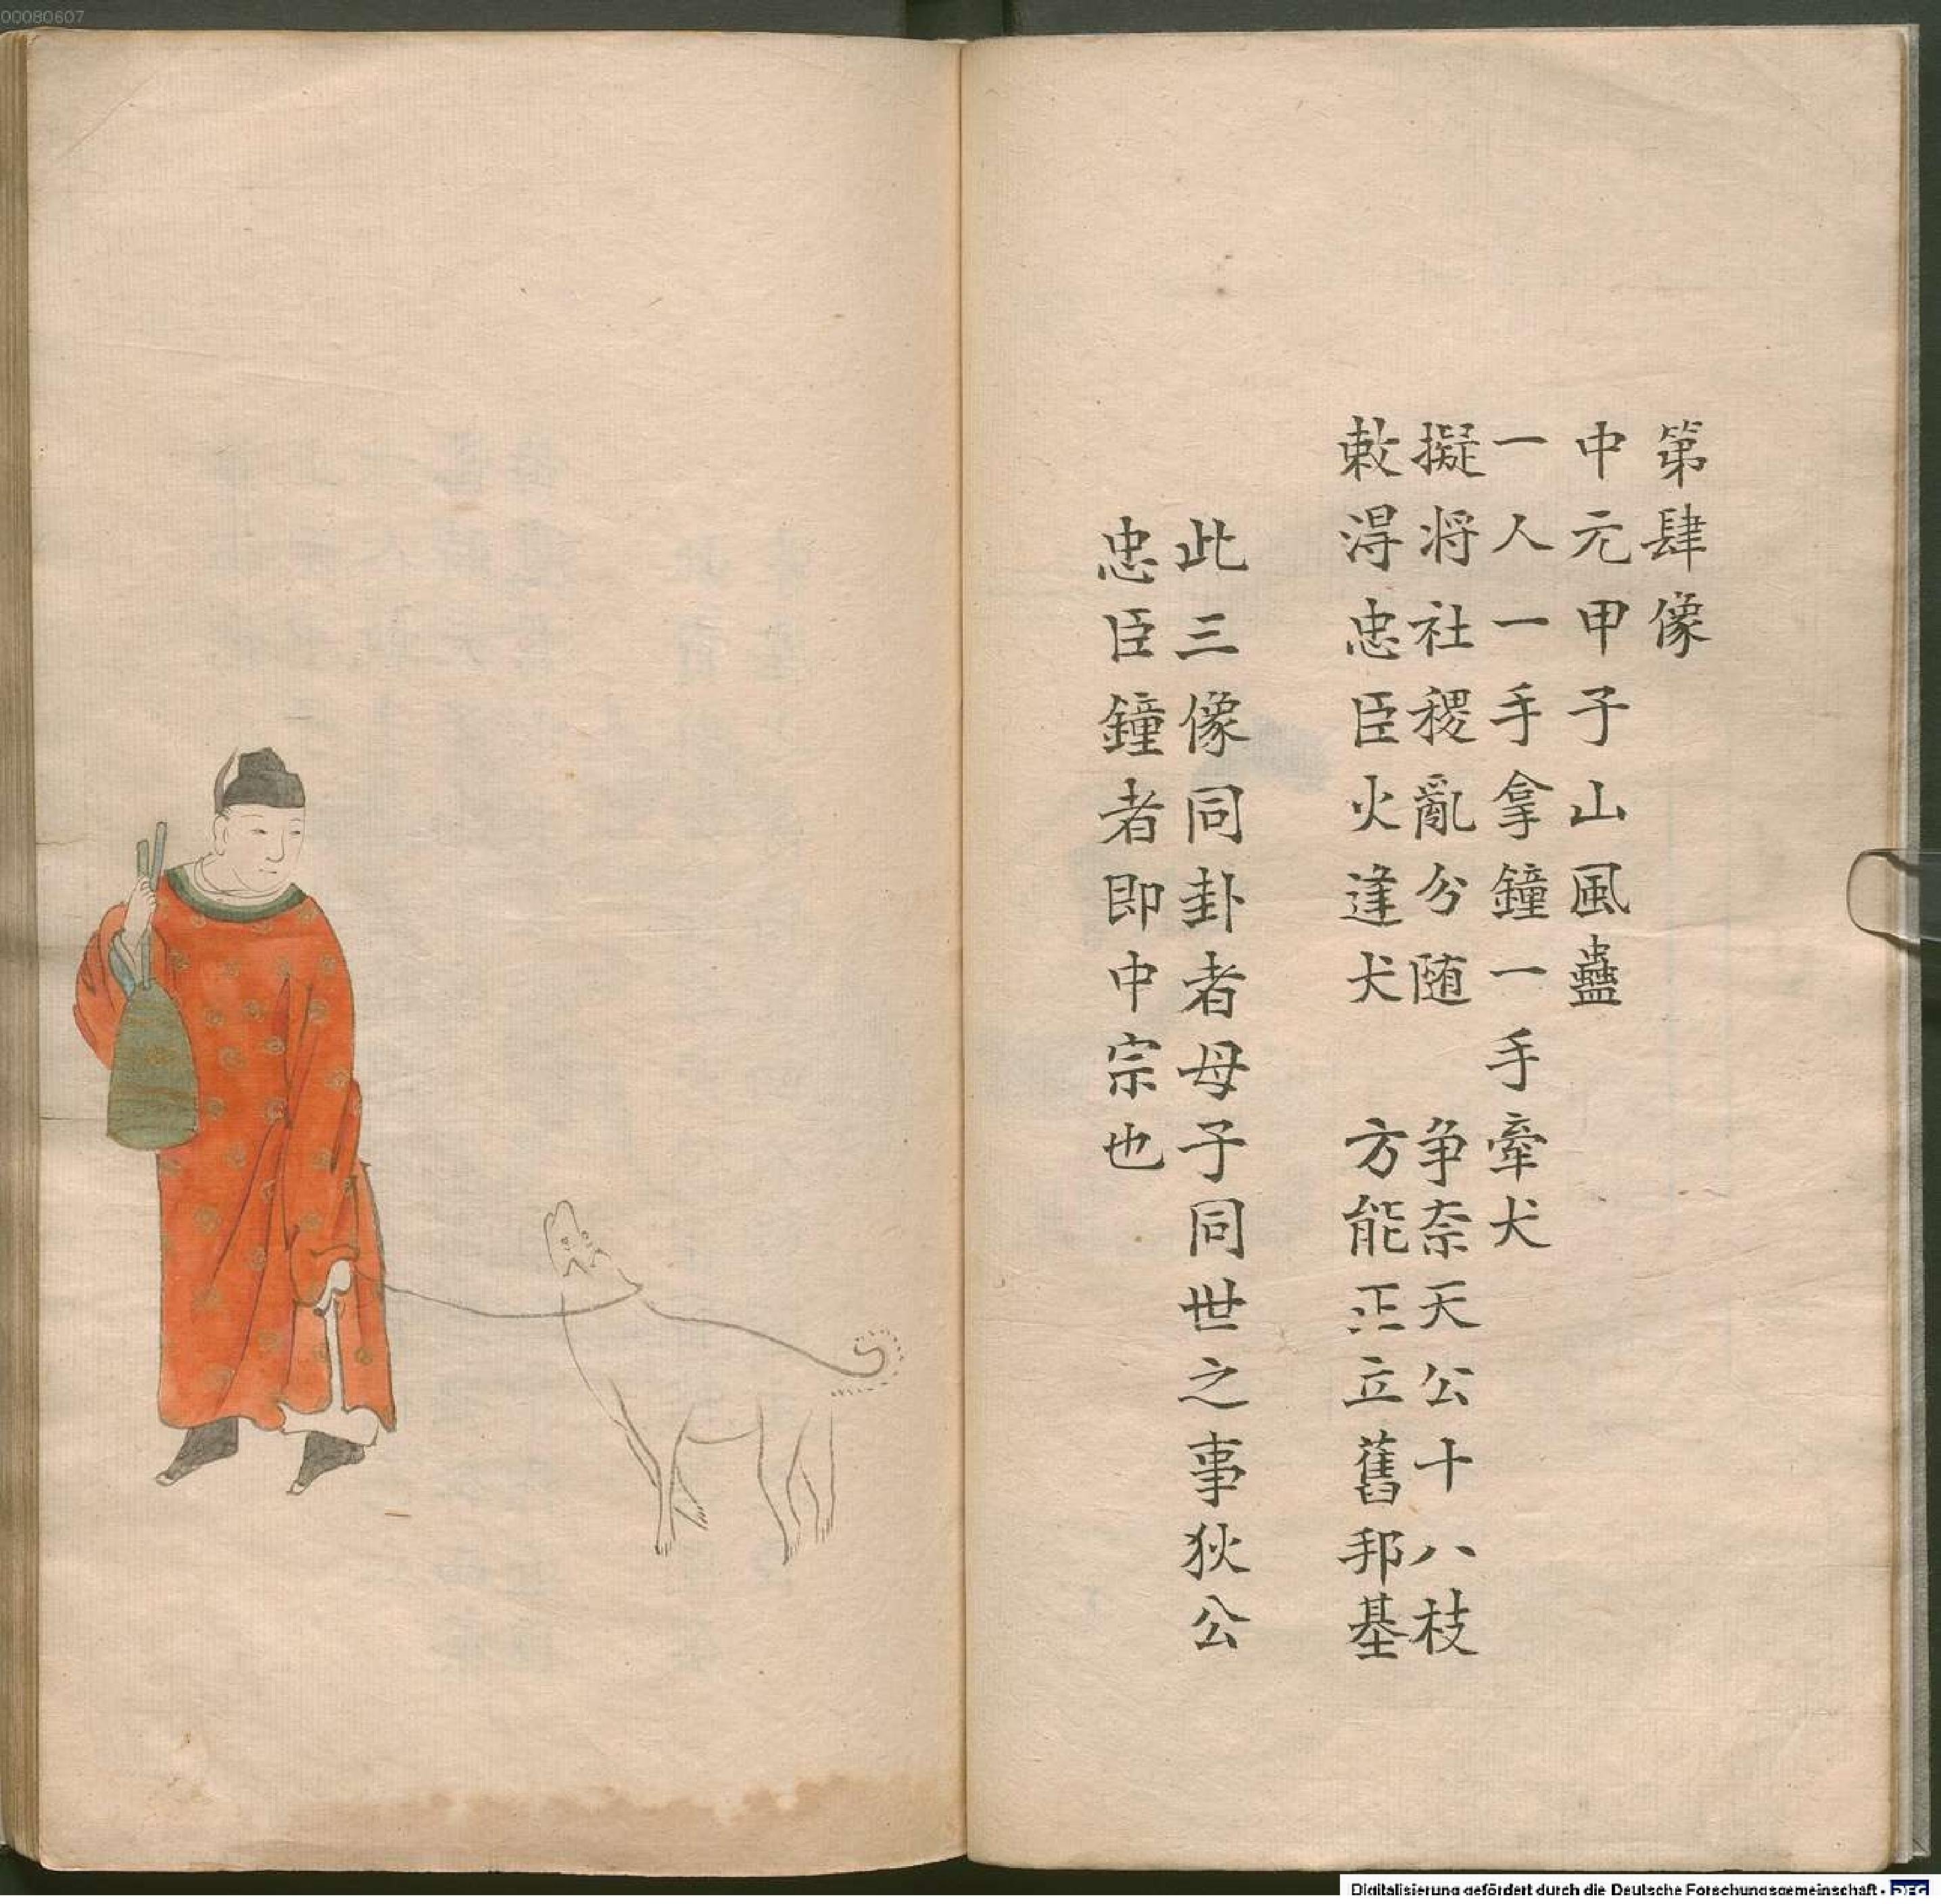 00080607
第肆像
中元甲子山風蠱
一人一手拿鐘一手牽犬
擬将社稷亂分随 争奈天公十八枝
敕淂忠臣火逢犬 方能正立舊邦基
此三像同卦者母子同世之事狄公
忠臣鐘者即中宗也
Digitalisierung gefördert durch die Deutsche Forschungsgemeinschaft - DFG